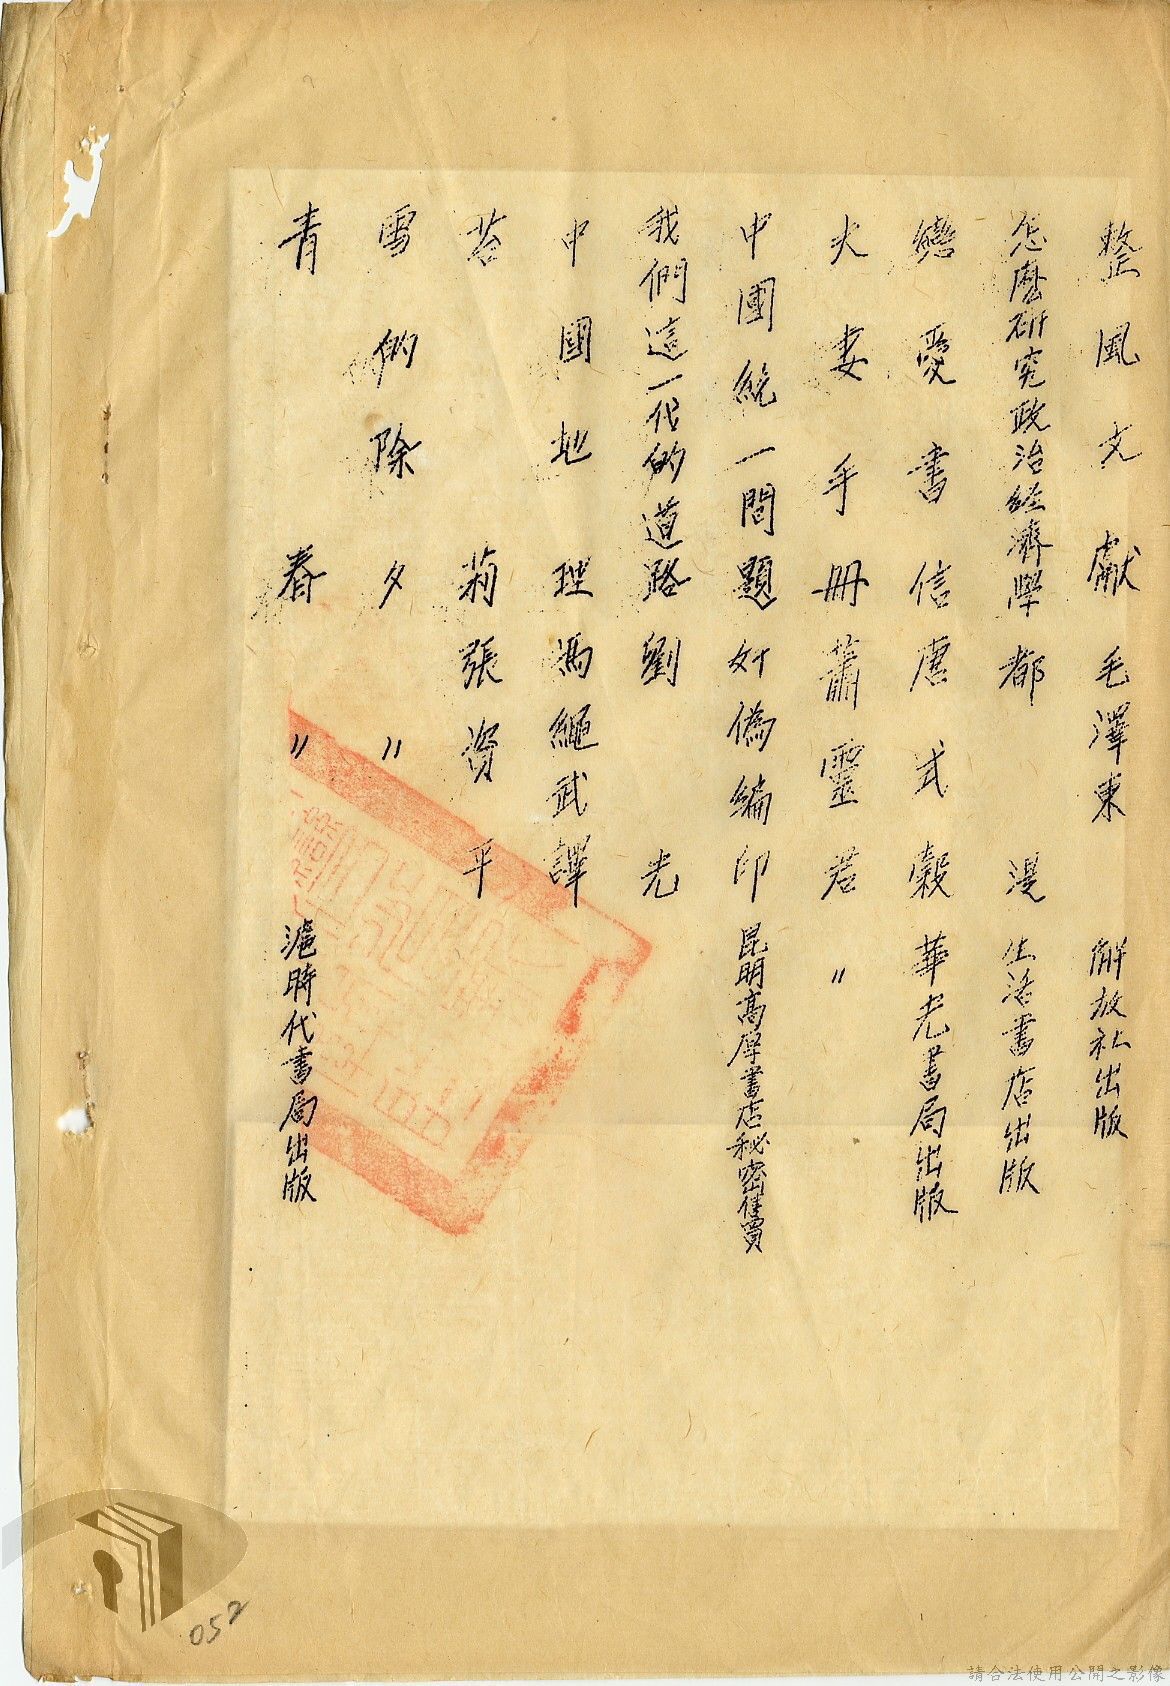 整風文獻毛澤東　解放社出版
怎麼研究政治經濟學都漫　生活書店出版
戀愛書信唐式穀　華光書局出版
夫妻手冊蕭靈君　〃
中國統一問題奸偽編印　昆明高原書店秘密售賣
我們這一代的道路劉光
中國地理馮繩武譯
苔莉張資平
雪的除夕〃
青春〃　滬時代書局出版
052
請合法使用公開之影像